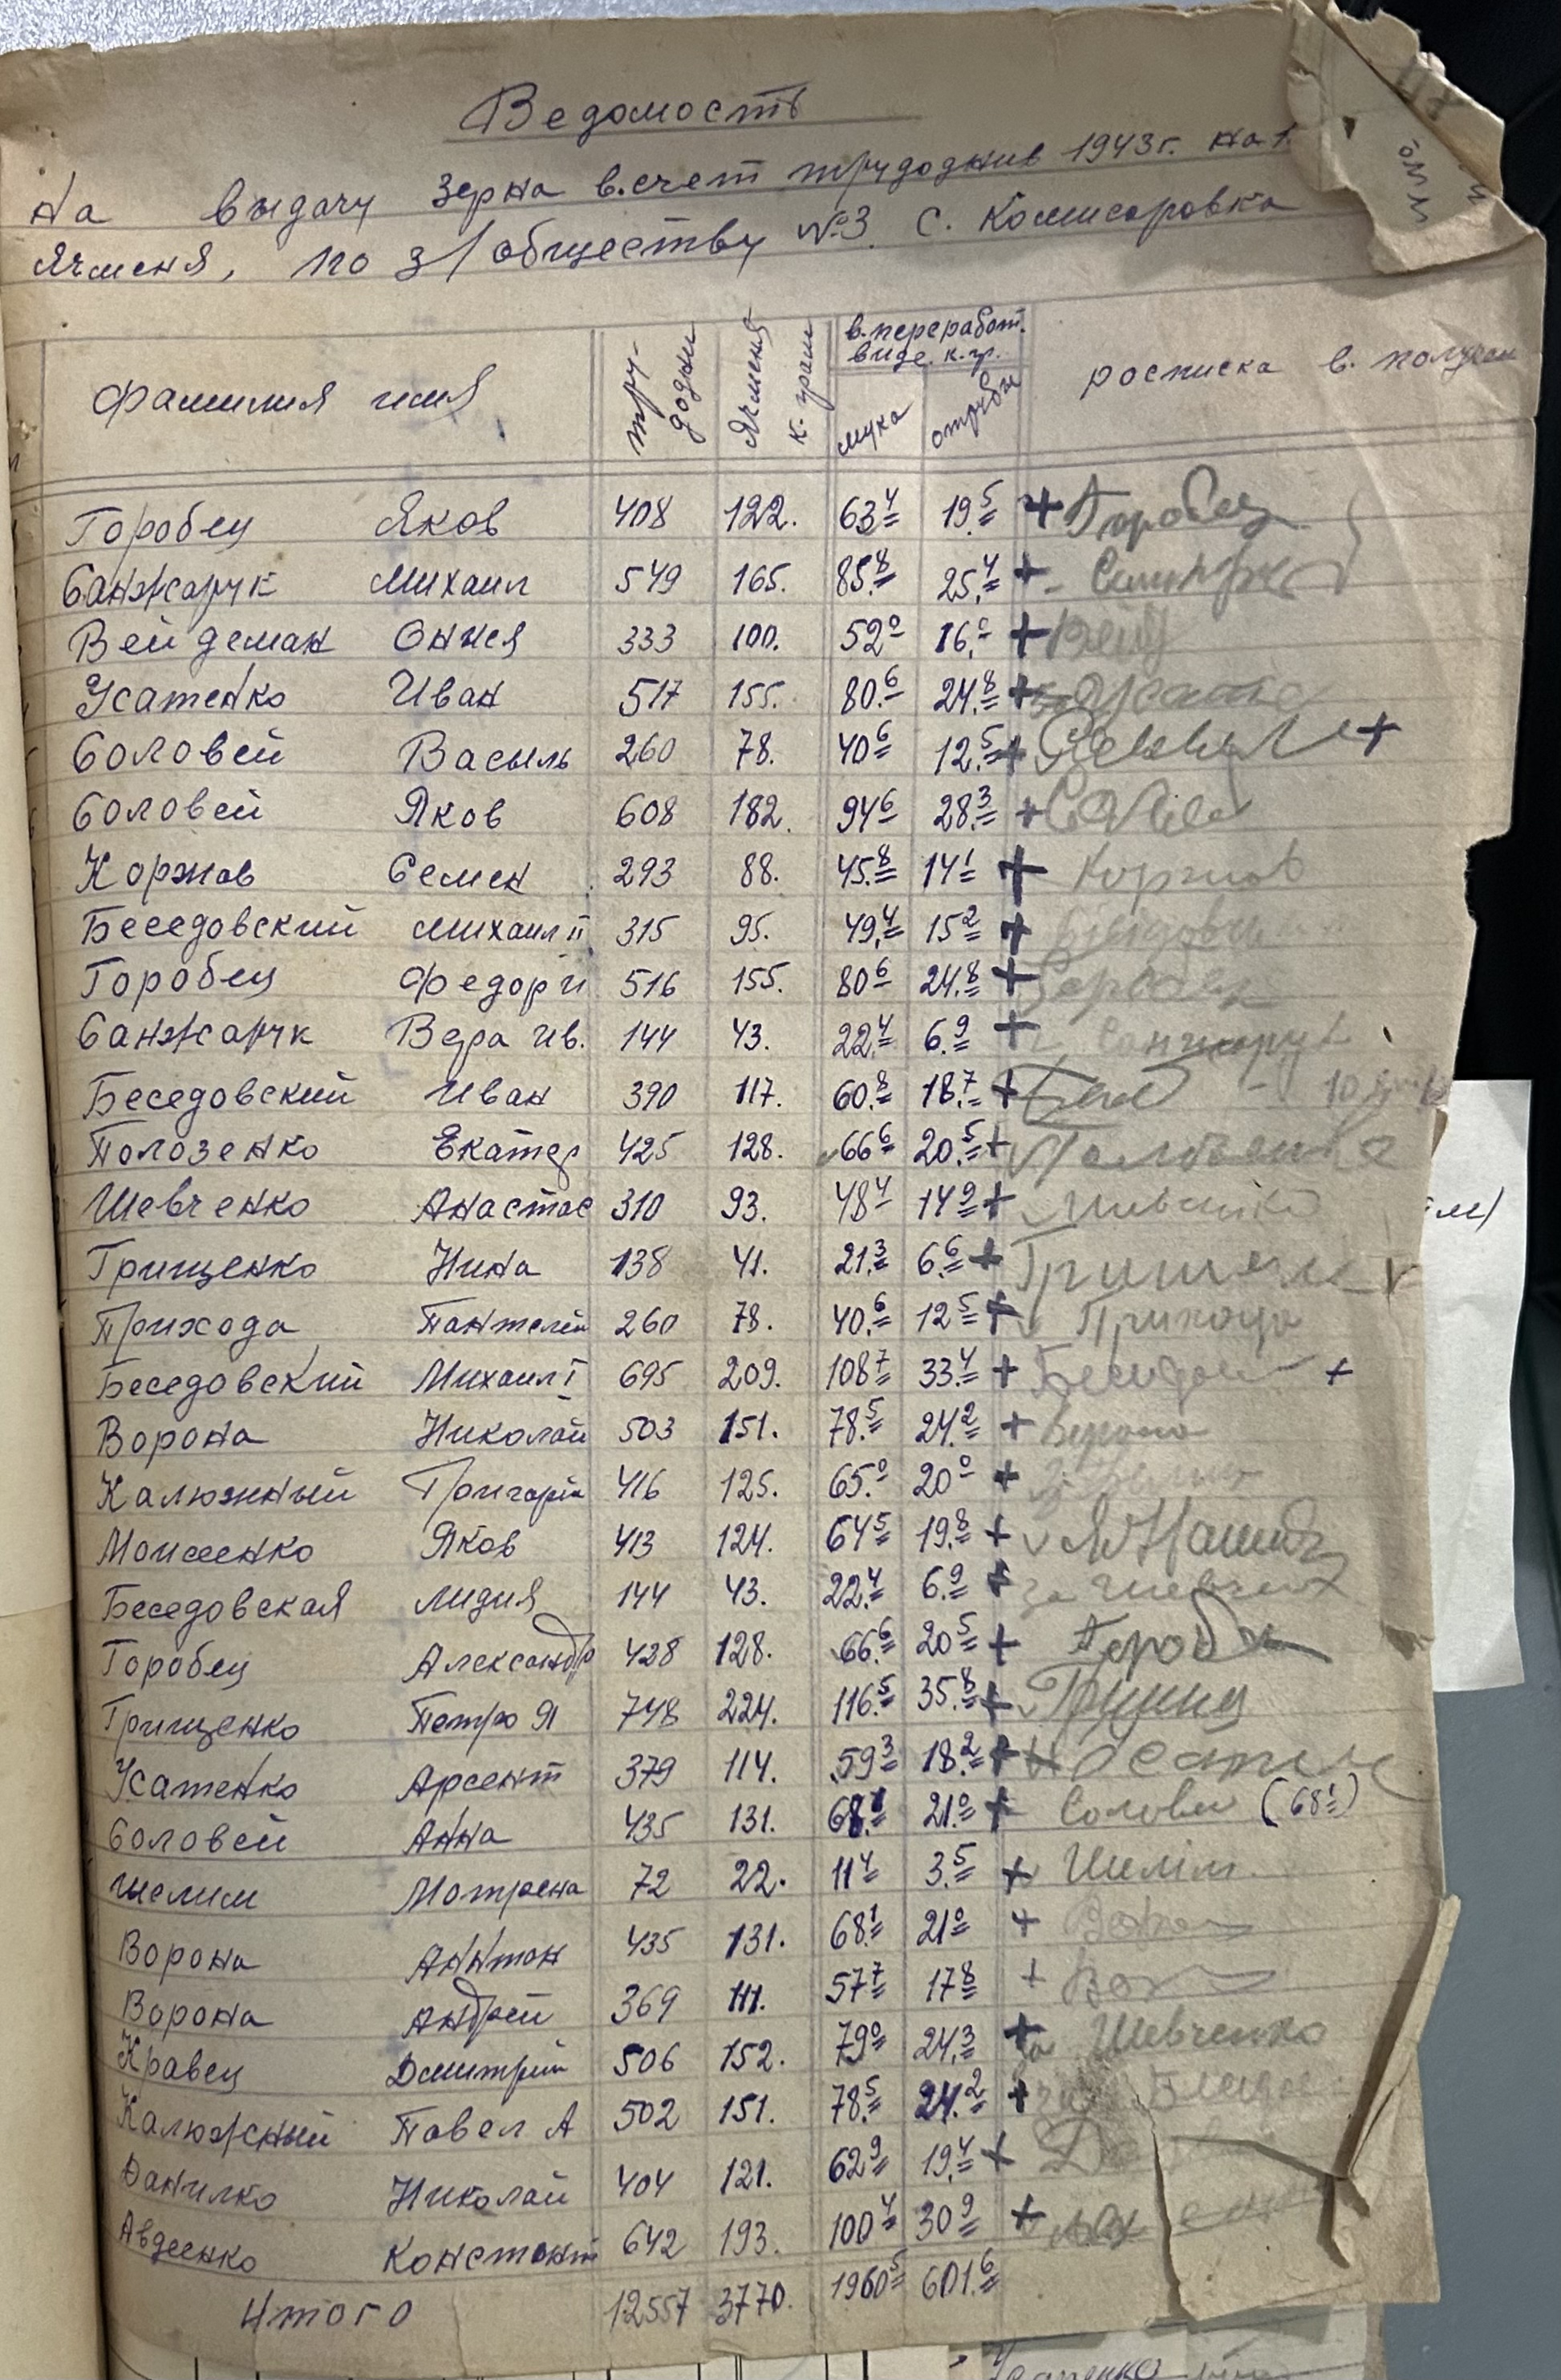 Ведомость
На выдачу зерна в.счет трудоднив 1943г. на 1.
Ячменя, по з/обществу №3. С. Комисаровка
фамилия имя тру-додни Ячменя к. грам в.переработ. виде. к.гр. мука отрубы росписка в. получен
Горобец Яков 408 122. 63,4 19,5 + Горобец
Санжарук Михаил 549 165. 85,8 25,4 +
Вейдеман Онися 333 100. 52,0 16,0 + Вейд
Усатенко Иван 517 155. 80,6 24,8 +
Соловей Васыль 260 78. 40,6 12,5 + +
Соловей Яков 608 182. 94,6 28,3 +
Коржов Семен 293 88. 45,8 14,1 + Коржов
Беседовский Михаил II 315 95. 49,4 15,2 +
Горобец Федор И 516 155. 80,6 24,8 +
Санжарук Вера Ив. 144 43. 22,4 6,9 + Санжарук
Беседовский Иван 390 117. 60,8 18,7 + Бесе
Полозенко Екатер 425 128. 66,6 20,5 +
Шевченко Анастас 310 93. 48,4 14,9 +
Грищенко Нина 138 41. 21,3 6,6 +
Прихода Пантелей 260 78. 40,6 12,5 + Прихода
Беседовский Михаил I 695 209. 108,7 33,4 + +
Ворона Николай 503 151. 78,5 24,2 + Ворона
Калюжный Григорий 416 125. 65,0 20,0 +
Моисеенко Яков 413 124. 64,5 19,8 +
Беседовская Лидия 144 43. 22,4 6,9 + за Шевченк
Горобец Александр 428 128. 66,6 20,5 + Горобец
Грищенко Петро Я 748 224. 116,5 35,8 + Грищ
Усатенко Арсент 379 114. 59,3 18,2 +
Соловей Анна 435 131. 68,1 21,0 + Соловей (68,1)
Шелим Мотрена 72 22. 11,4 3,5 + Шелім
Ворона Аннтон 435 131. 68,1 21,0 +
Ворона Андрей 369 111. 57,7 17,8 +
Кравец Дмитрий 506 152. 79,0 24,3 + за Шевченко
Калюжный Павел А 502 151. 78,5 24,2 +
Данилко Николай 404 121. 62,9 19,4 +
Авдеенко Констант 642 193. 100,4 30,9 +
Итого 12557 3770. 1960,5 601,6